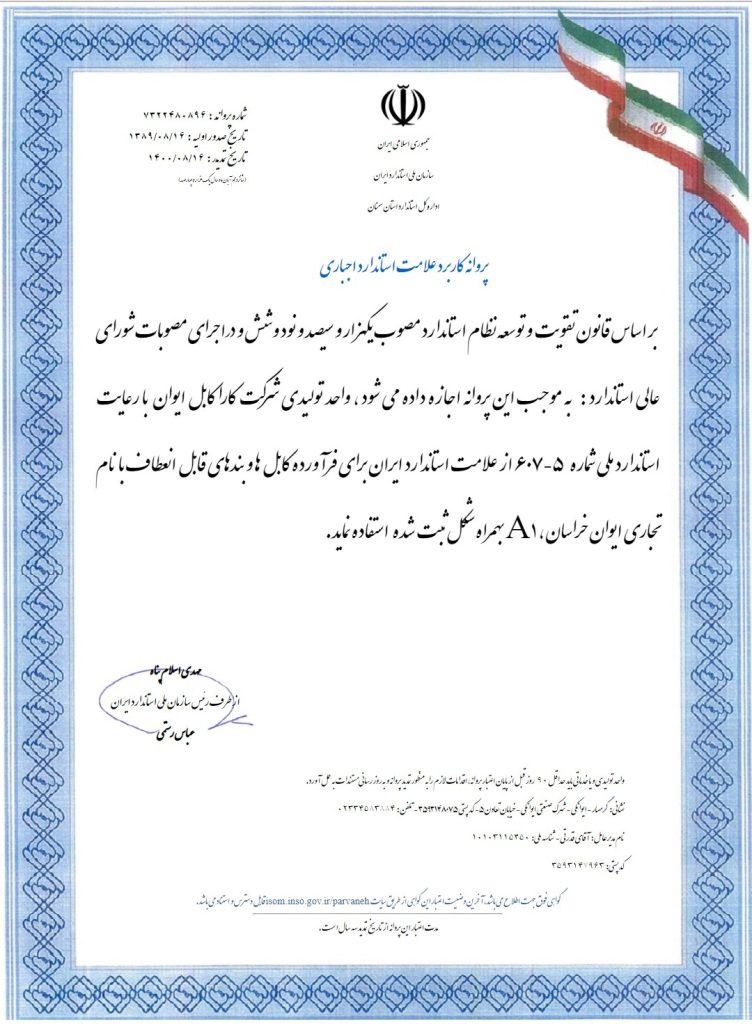 جمهوری اسلامی ایران
سازمان ملی استاندارد ایران
اداره کل استاندارد استان سمنان
شماره پروانه : ۷۳۲۲۴۸۰۸۹۴
تاریخ صدور اولیه : ۱۳۸۹/۰۸/۱۴
تاریخ تمدید : ۱۴۰۰/۰۸/۱۴
پروانه کاربرد علامت استاندارد اجباری
بر اساس قانون تقویت و توسعه نظام استاندارد مصوب یکهزار و سیصد و نود و شش و در اجرای مصوبات شورای
عالی استاندارد : به موجب این پروانه اجازه داده می شود ، واحد تولیدی شرکت کارا کابل ایوان با رعایت
استاندارد ملی شماره ۵-۶۰۷ از علامت استاندارد ایران برای فرآورده کابل ها و بندهای قابل انعطاف با نام
تجاری ایوان خراسان،A۱ بهمراه شکل ثبت شده استفاده نماید.
مهدی اسلام پناه
از طرف رئیس سازمان ملی استاندارد ایران
عباس رستمی
واحد تولیدی و یا خدماتی باید حداقل ۹۰ روز قبل از پایان اعتبار پروانه، اقدامات لازم را به منظور تمدید پروانه و به روز رسانی مستندات به عمل آورد.
نشانی: گرمسار - ایوانکی - شهرک صنعتی ایوانکی - خیابان تعاون ۵ - کد پستی ۳۵۹۳۱۴۸۰۷۵ - تلفن: ۰۲۳۳۴۵۸۳۸۸۴
نام مدیرعامل: آقای قدرتی - شناسه ملی: ۱۰۱۰۳۱۱۵۳۵۰
کد پستی: ۳۵۹۳۱۴۷۹۶۳
گواهی فوق جهت اطلاع می باشد، آخرین وضعیت اعتبار این گواهی از طریق سایت isom.inso.gov.ir/parvaneh قابل دسترس و استناد می باشد.
مدت اعتبار این پروانه از تاریخ تمدید سه سال است.